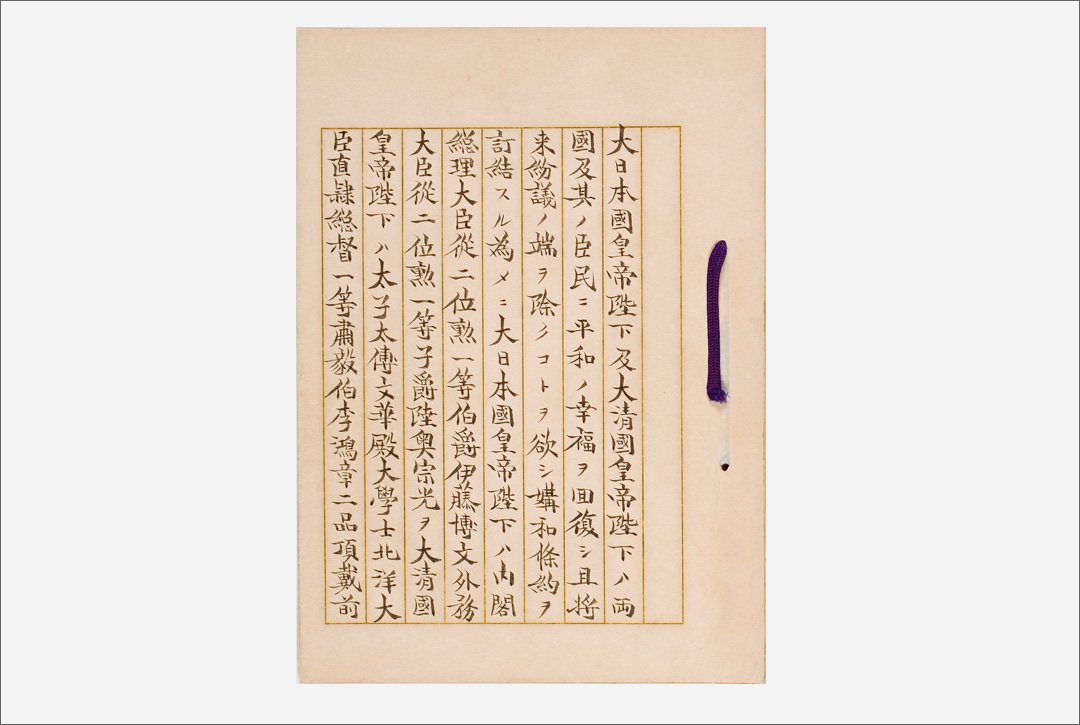 大日本國皇帝陛下及大清國皇帝陛下ハ両
國及其ノ臣民ニ平和ノ幸福ヲ囬復シ且将
来紛議ノ端ヲ除クコトヲ欲シ媾和條約ヲ
訂結スル為メニ大日本國皇帝陛下ハ内閣
総理大臣從二位勲一等伯爵伊藤博文外務
大臣從二位勲一等子爵陸奥宗光ヲ大清國
皇帝陛下ハ太子太傅文華殿大學士北洋大
臣直隷総督一等肅毅伯李鴻章二品頂戴前